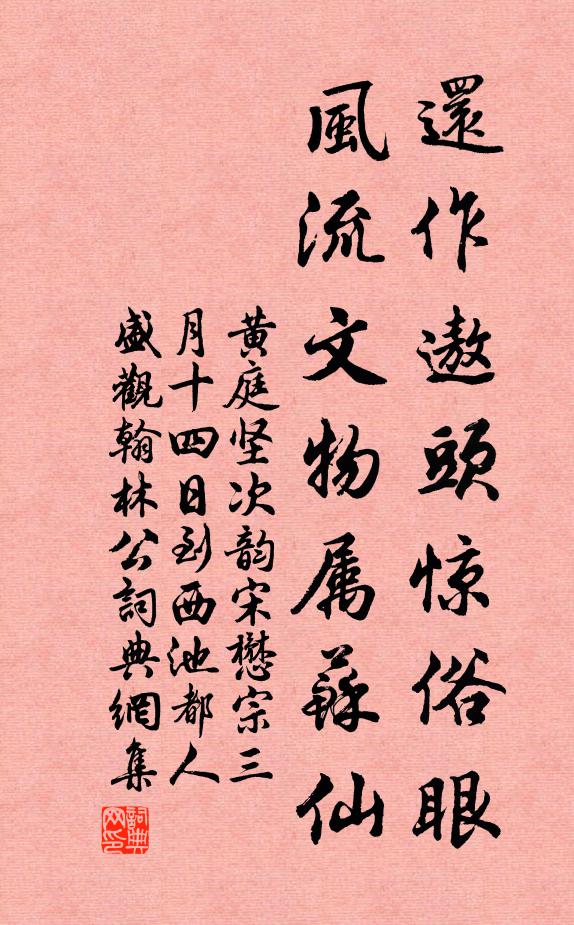 還作遨頭惊俗眼
風流文物属蘇仙
黄庭坚次韵宋懋宗三
月十四日到西池都人
盛觀翰林公詞典網集
詞典网印